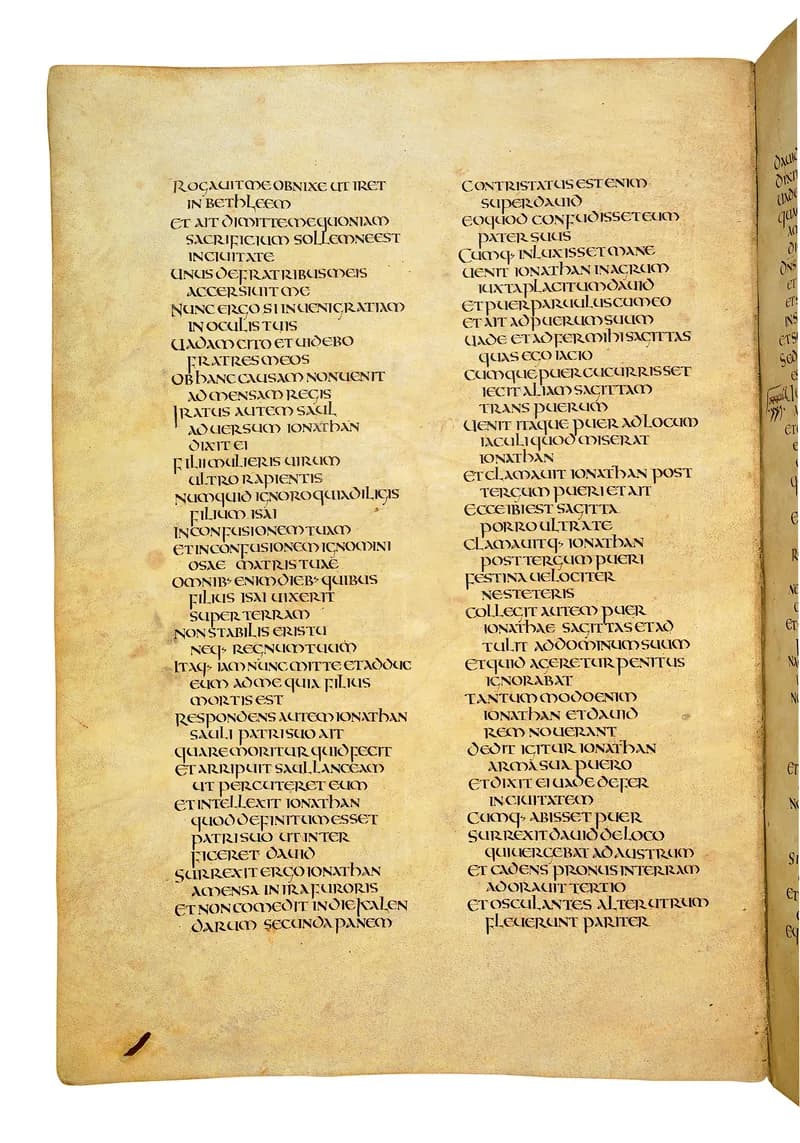 ROGAUIT ME OBNIXE UT IRET
IN BETHLEEM
ET AIT DIMITTE ME QUONIAM
SACRIFICIUM SOLLEMNE EST
IN CIUITATE
UNUS DE FRATRIBUS MEIS
ACCERSIUIT ME
NUNC ERGO SI INUENI GRATIAM
IN OCULIS TUIS
UADAM CITO ET UIDEBO
FRATRES MEOS
OB HANC CAUSAM NON UENIT
AD MENSAM REGIS
IRATUS AUTEM SAUL
ADUERSUM IONATHAN
DIXIT EI
FILI MULIERIS UIRUM
ULTRO RAPIENTIS
NUMQUID IGNORO QUIA DILIGIS
FILIUM ISAI
IN CONFUSIONEM TUAM
ET IN CONFUSIONEM IGNOMINI
OSAE MATRIS TUAE
OMNIB· ENIM DIEB· QUIBUS
FILIUS ISAI UIXERIT
SUPER TERRAM
NON STABILIS ERIS TU
NEQ· REGNUM TUUM
ITAQ· IAM NUNC MITTE ET ADDUC
EUM AD ME QUIA FILIUS
MORTIS EST
RESPONDENS AUTEM IONATHAN
SAULI PATRI SUO AIT
QUARE MORITUR QUID FECIT
ET ARRIPUIT SAUL LANCEAM
UT PERCUTERET EUM
ET INTELLEXIT IONATHAN
QUOD DEFINITUM ESSET
PATRI SUO UT INTER
FICERET DAUID
SURREXIT ERGO IONATHAN
A MENSA IN IRA FURORIS
ET NON COMEDIT IN DIE KALEN
DARUM SECUNDA PANEM
CONTRISTATUS EST ENIM
SUPER DAUID
EO QUOD CONFUDISSET EUM
PATER SUUS
CUMQ· INLUXISSET MANE
UENIT IONATHAN IN AGRUM
IUXTA PLACITUM DAUID
ET PUER PARUULUS CUM EO
ET AIT AD PUERUM SUUM
UADE ET ADFER MIHI SAGITTAS
QUAS EGO IACIO
CUMQUE PUER CUCURRISSET
IECIT ALIAM SAGITTAM
TRANS PUERUM
UENIT ITAQUE PUER AD LOCUM
IACULI QUOD MISERAT
IONATHAN
ET CLAMAUIT IONATHAN POST
TERGUM PUERI ET AIT
ECCE IBI EST SAGITTA
PORRO ULTRA TE
CLAMAUITQ· IONATHAN
POST TERGUM PUERI
FESTINA UELOCITER
NE STETERIS
COLLEGIT AUTEM PUER
IONATHAE SAGITTAS ET AD
TULIT AD DOMINUM SUUM
ET QUID AGERETUR PENITUS
IGNORABAT
TANTUMMODO ENIM
IONATHAN ET DAUID
REM NOUERANT
DEDIT IGITUR IONATHAN
ARMA SUA PUERO
ET DIXIT EI UADE DEFER
IN CIUITATEM
CUMQ· ABISSET PUER
SURREXIT DAUID DE LOCO
QUI UERGEBAT AD AUSTRUM
ET CADENS PRONUS IN TERRAM
ADORAUIT TERTIO
ET OSCULANTES ALTERUTRUM
FLEUERUNT PARITER